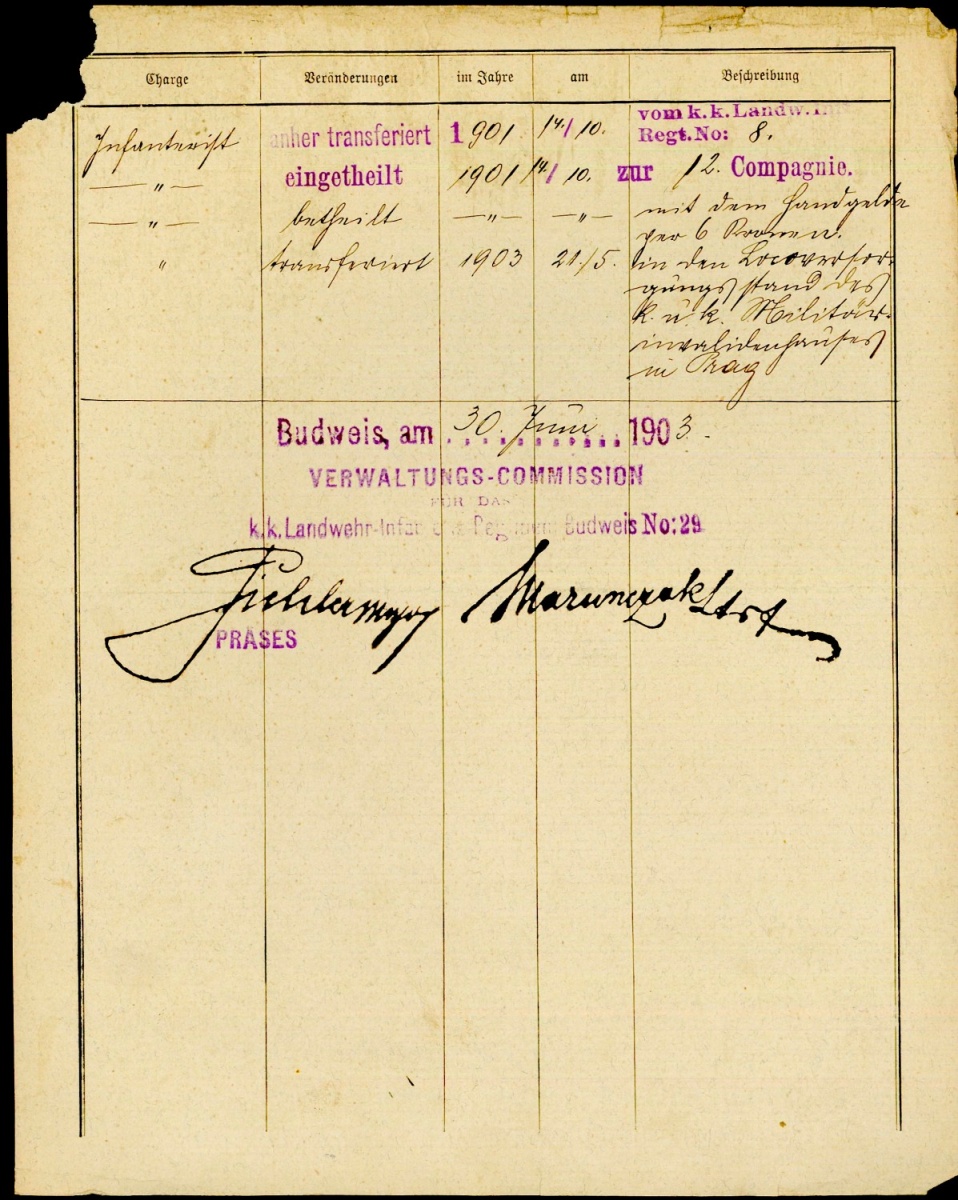 Charge Veränderungen im Jahre am Beschreibung
vom k.k. Landw.
Infanterist anher transferiert 1901 14/10. Regt. No: 8.
— " — eingetheilt 1901 14/10. zur 12. Compagnie.
— " — betheilt — " — — " — mit dem Handgelde
per 6 Kronen.
" transferiert 1903 21/5. in den Locoversor-
gungsstand des
k. u. k. Militär-
invalidenhauses
in Prag
Budweis, am 30. Juni 1903.
VERWALTUNGS-COMMISSION
FÜR DAS
k.k. Landwehr- Budweis No: 29
PRÄSES